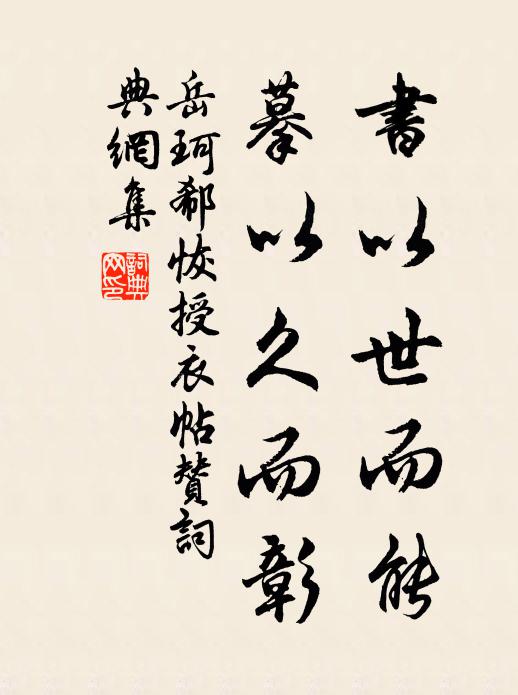 書以世而能
摹以久而彰
岳珂郗恢授衣帖赞詞
典網集
詞典
网印